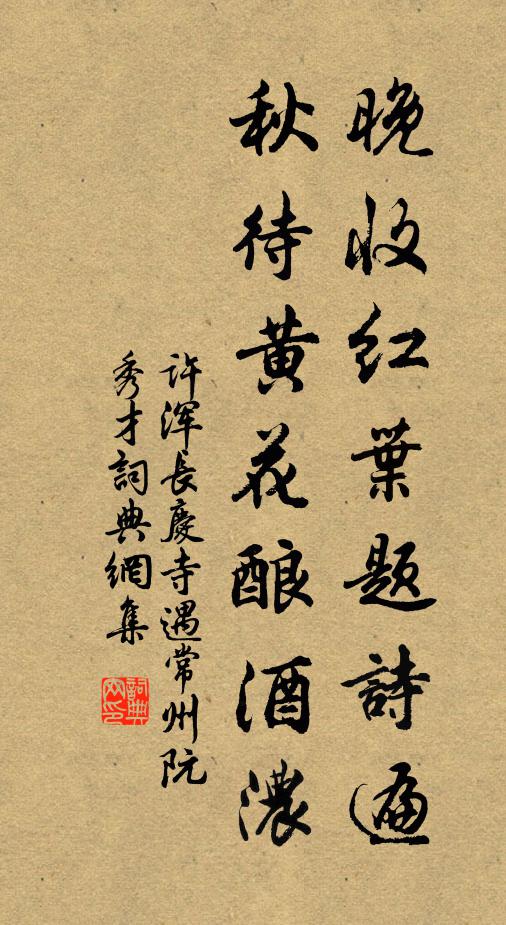 晚收红葉题詩遍
秋待黄花酿酒濃
许渾長慶寺遇常州阮
秀才詞典網集
詞典
网印